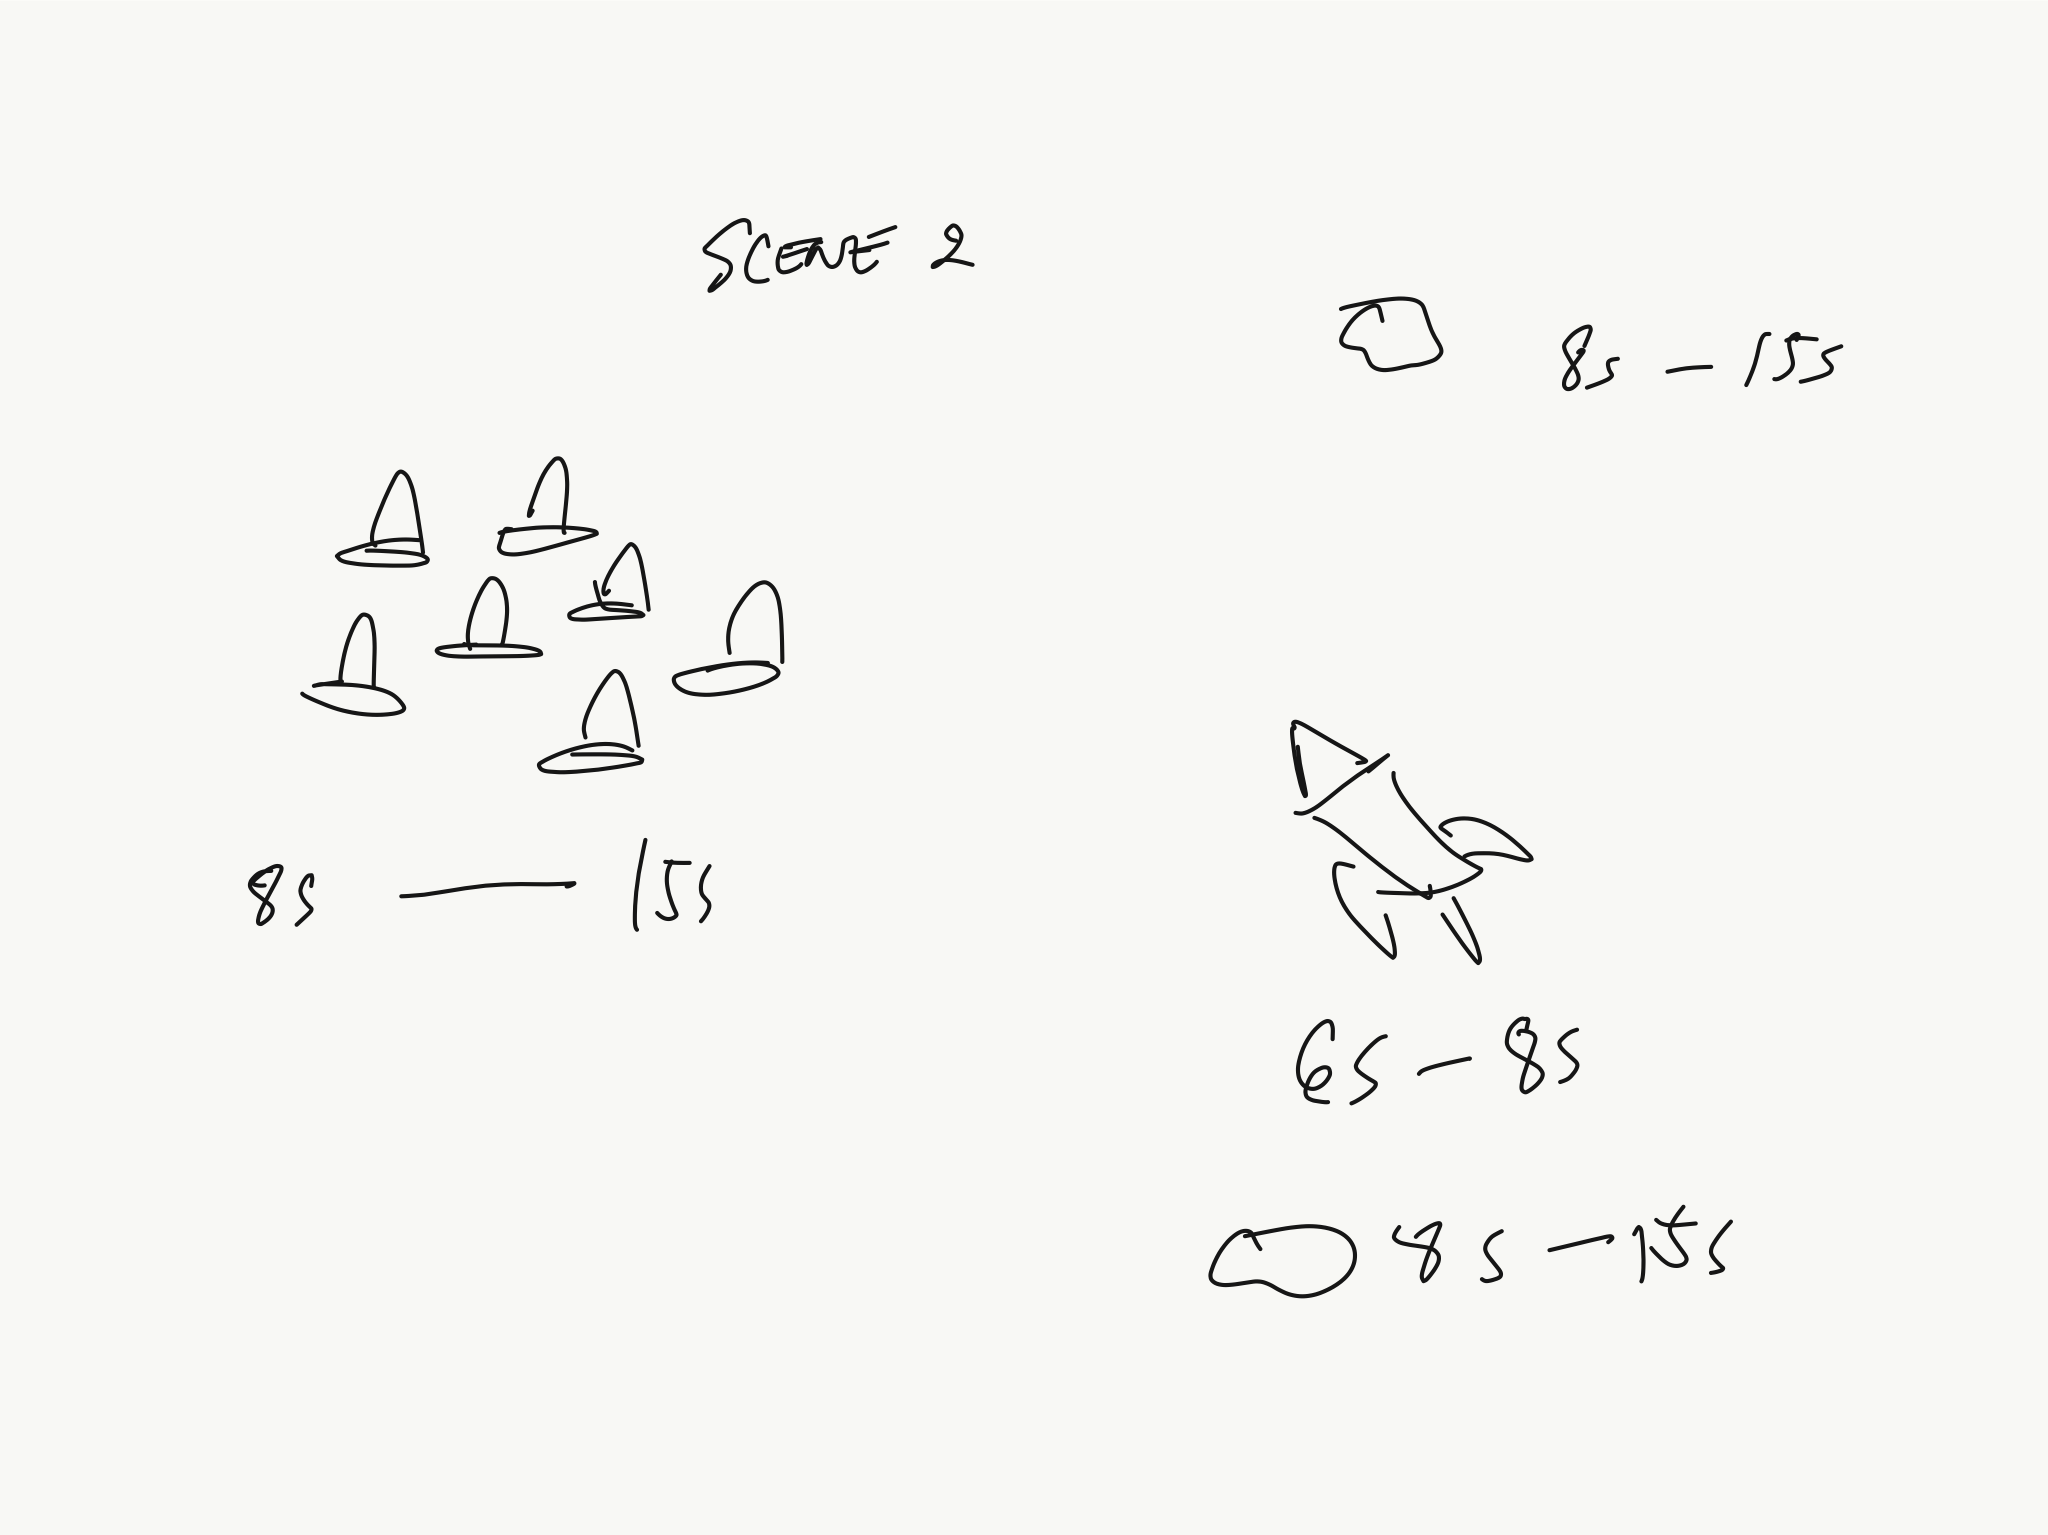 SCENE 2
8s - 15s
8s - 15s
6s - 8s
8s - 15s